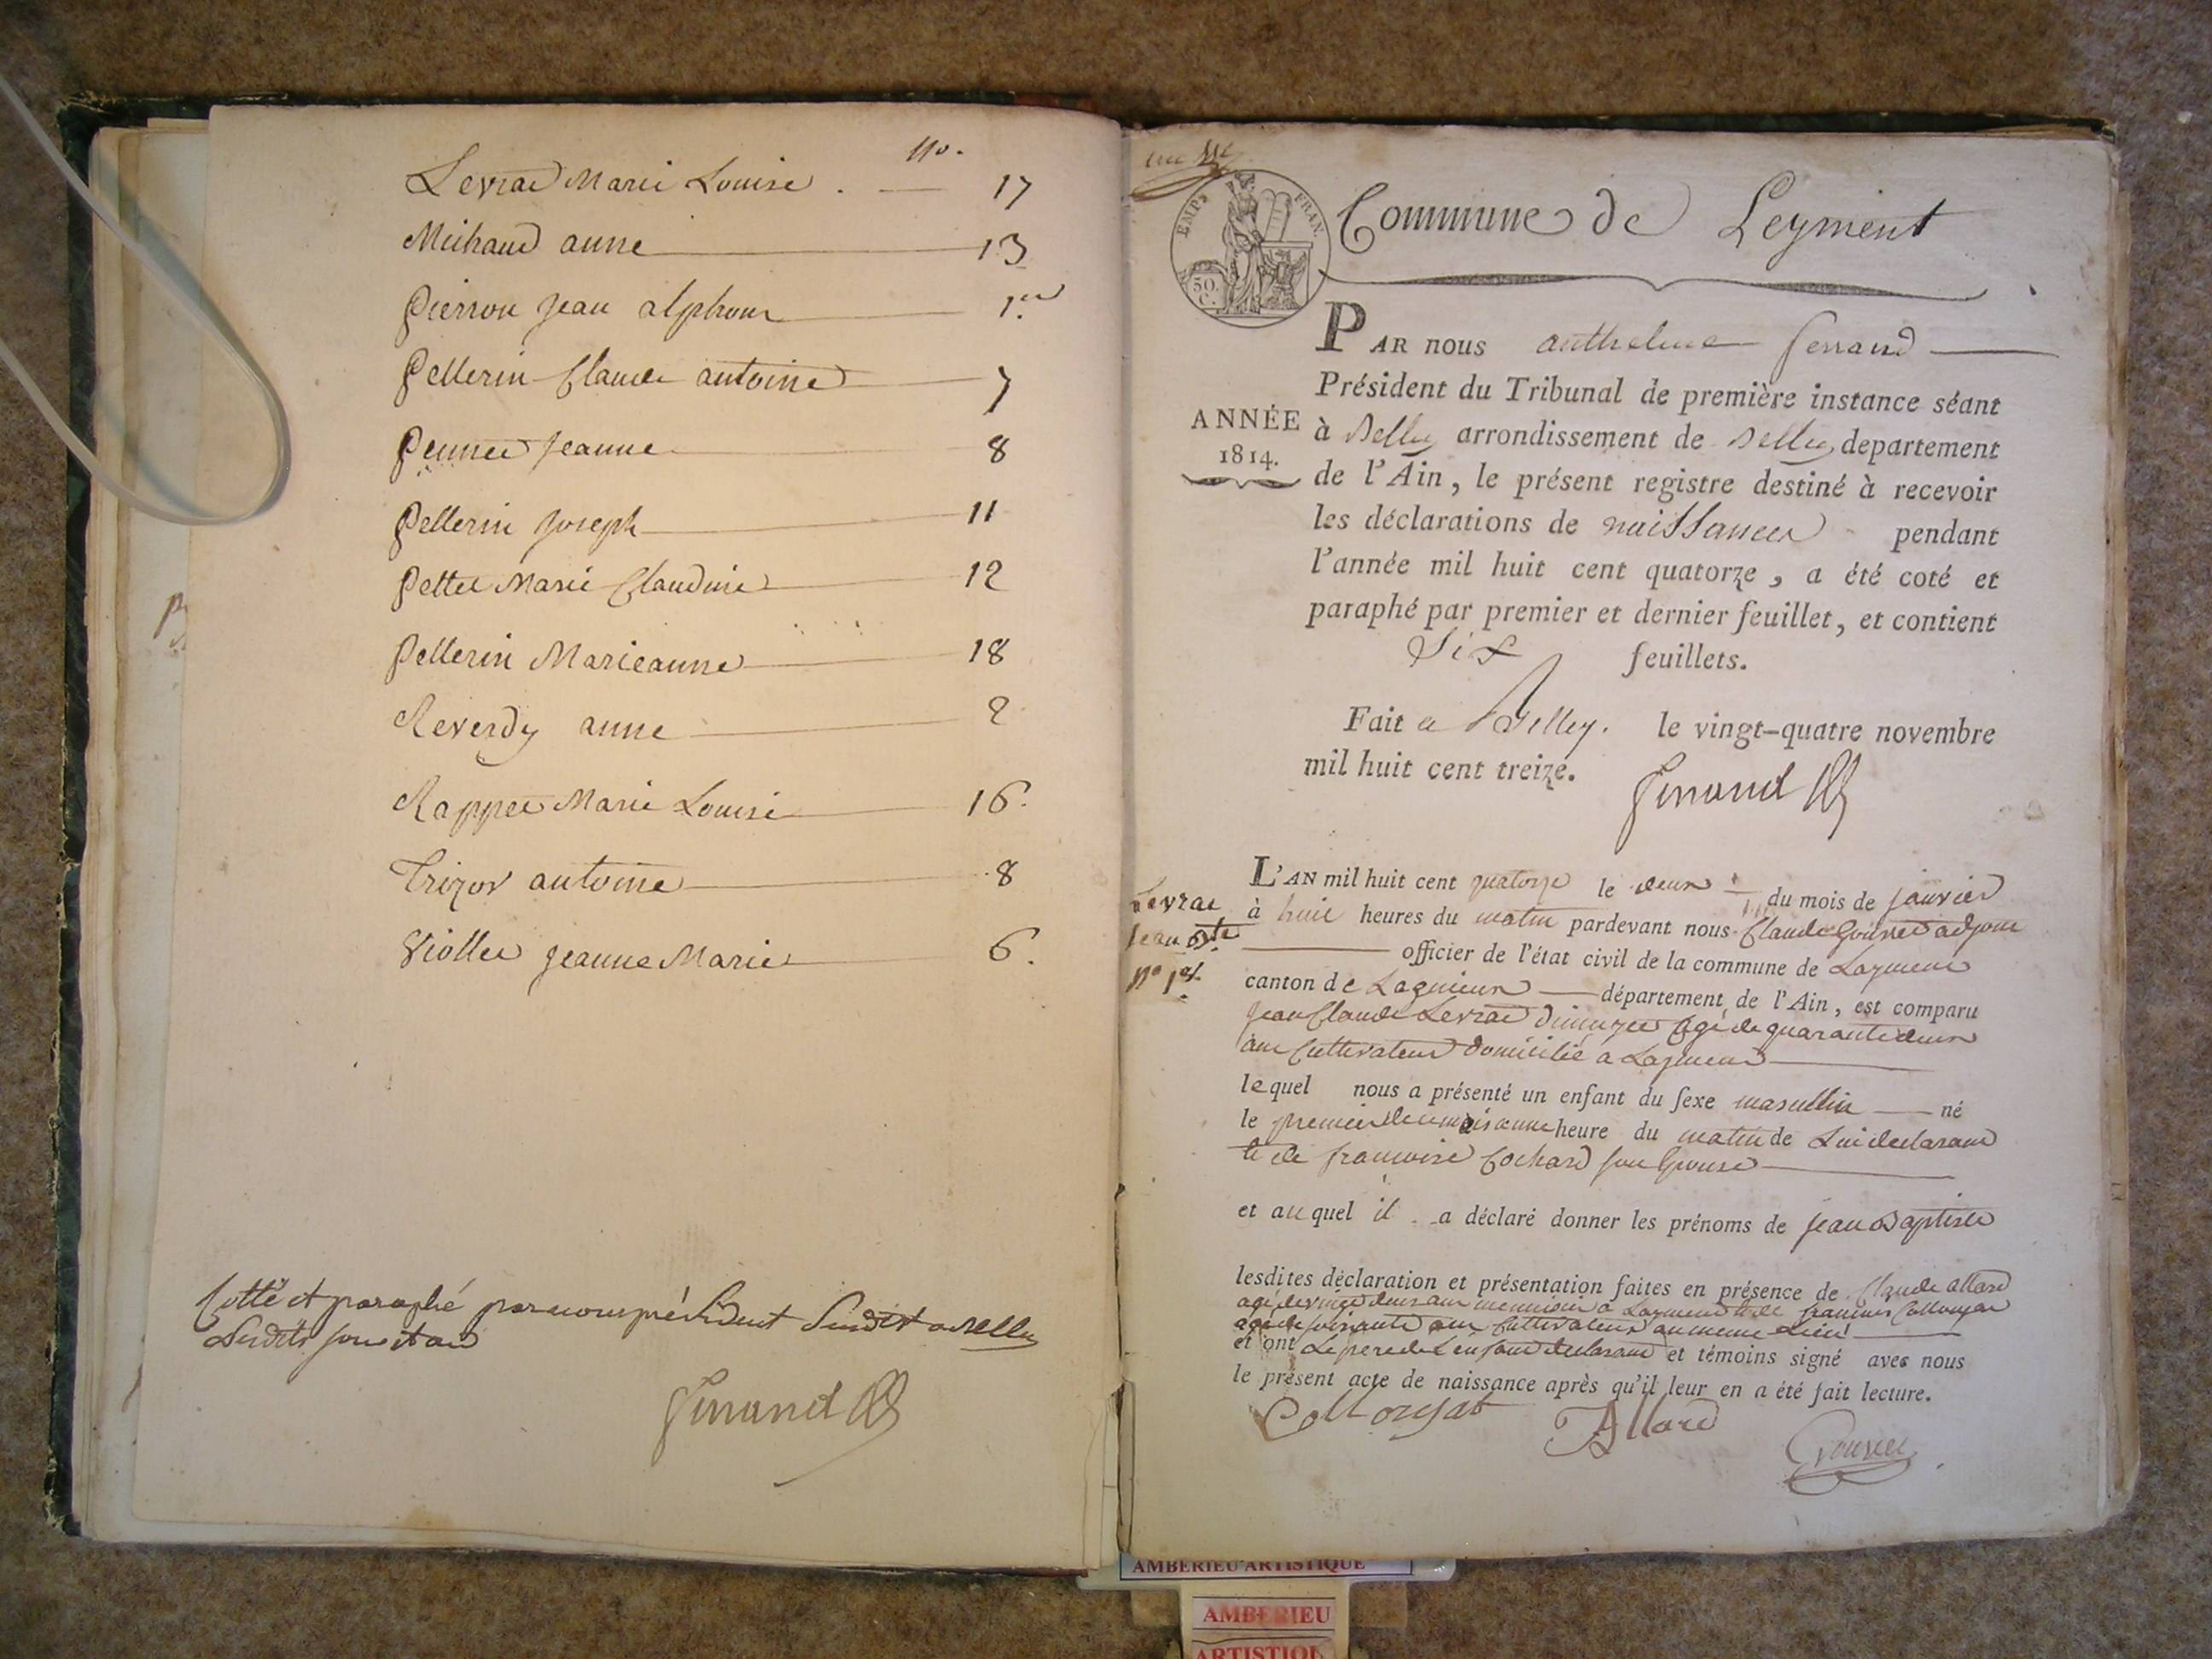 No.
Levrat Marie Louise . — 17
Michaud anne — 13
Pierron Jean alphonse — 1.er
Pellerin Claude antoine — 7
Jeanne — 8
Pellerin Joseph — 11
Pettet Marie Claudine — 12
Pellerin Marieanne — 18
Reverdy anne — 2
Rappet Marie Louise — 16.
Trizor antoine — 8
Viollet Jeanne Marie — 6.
Cotté et paraphé par nous président susdit a Belley
Susdits jour et an
Ferrand
Commune de Leyment
EMP. FRAN.
50. C.
PAR NOUS anthelme ferrand
Président du Tribunal de première instance séant
ANNÉE
1814.
à Belley arrondissement de Belley, departement
de l'Ain, le présent registre destiné à recevoir
les déclarations de naissances pendant
l'année mil huit cent quatorze, a été coté et
paraphé par premier et dernier feuillet, et contient
Six feuillets.
Fait a Belley. le vingt-quatre novembre
mil huit cent treize.
Ferrand
Levrat
Jean Bte
No 1er
L'AN mil huit cent quatorze le deux du mois de janvier
à huit heures du matin pardevant nous Claude Gouvet adjoint
officier de l'état civil de la commune de Laymens
canton de Lagnieux département de l'Ain, est comparu
Jean Claude Levrat agé de quarante deux
ans Cultivateur domicilié a Laymens
lequel nous a présenté un enfant du sexe masculin né
le premier de ce mois a une heure du matin de Lui declarant
et de francoise Cochard son Epouse
et auquel il a déclaré donner les prénoms de jean Baptiste
lesdites déclaration et présentation faites en présence de Claude allard
agé de vingt deux ans menuisier a Laymens et de francois Collonjat
agé de soixante ans Cultivateur au meme Lieu
et ont Le pere de L'enfant declarant et témoins signé avec nous
le présent acte de naissance après qu'il leur en a été fait lecture.
Collonjat Allard Gouvet
AMBERIEU ARTISTIQUE
AMBERIEU